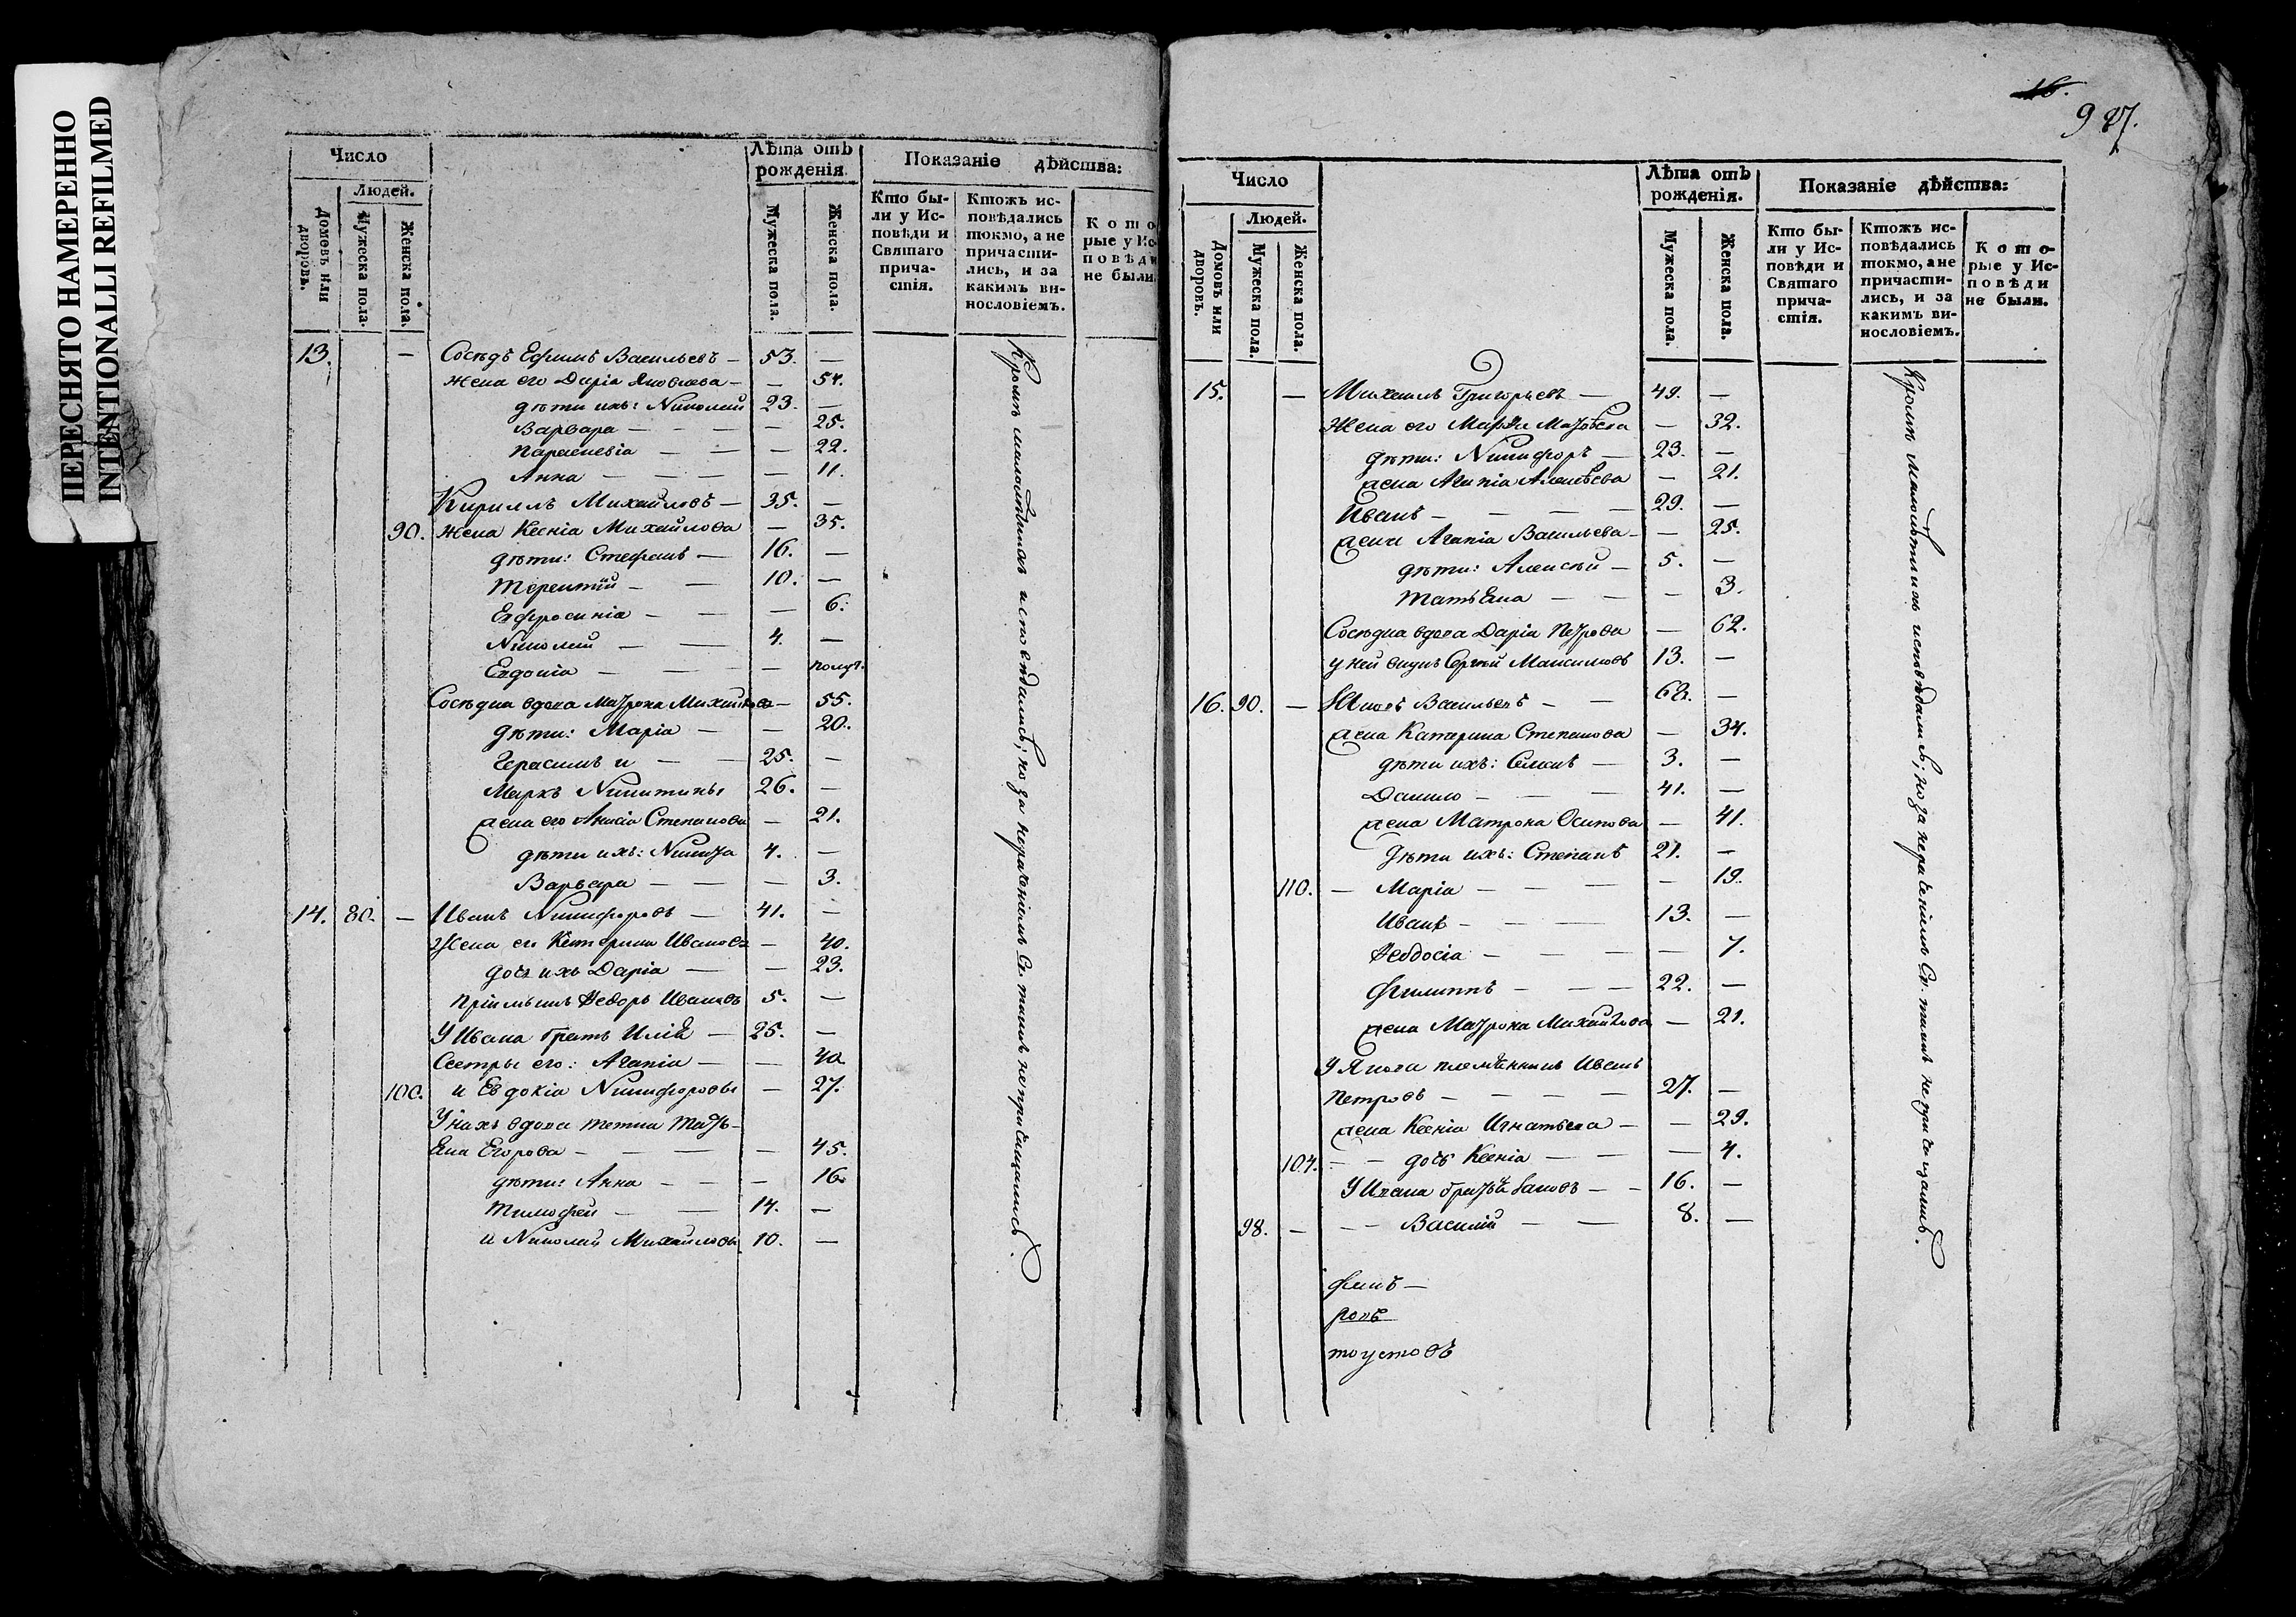 ПЕРЕСНЯТО НАМЕРЕННО
INTENTIONALLI REFILMED
Число
Лѣта отъ рожденія
Показаніе дѣйства:
Людей.
Домовъ или дворовъ.
Мужеска пола.
Женска пола.
Мужеска пола.
Женска пола.
Кто были у Исповѣди и Святаго причастія.
Ктожъ исповѣдались токмо, а не причастились, и за какимъ винословіемъ.
Которые у Исповѣди не были
13. — Сосѣдъ Ефимъ Васильевъ — 53. —
жена его Дарія Яковлева — — 54.
дѣти ихъ: Николай 23. —
Варвара — — — — 25.
Параскевіа — — — 22.
Анна — — — — 11.
Кириллъ Михайловъ — 35. —
90. жена Ксеніа Михайлова — 35.
дѣти: Стефанъ — 16. —
Терентій — — 10. —
Евфросиніа — — — 6.
Николай — — 4. —
Евдокіа — — — полуг.
Сосѣдка вдова Матрона Михайлова — 55.
дѣти: Маріа — — — 20.
Герасимъ и — — 25. —
Маркъ Никитины 26. —
жена его Анисіа Степанова — 21.
дѣти ихъ: Никита 4. —
Варвара — — — 3.
14. 80. — Иванъ Никифоровъ — 41. —
Жена его Катерина Иванова — 40.
дочь ихъ Даріа — — 23.
пріимышъ Ѳедоръ Ивановъ 5. —
У Ивана братъ Иліа — 25. —
Сестры его: Агапіа — — 40
100. и Евдокіа Никифоровы — 27.
У нихъ вдова тетка Тать-
яна Егорова — — — — 45.
дѣти: Анна — — — 16.
Тимофей — — 14. —
и Николай Михайловы 10. —
Кромѣ малолѣтнихъ исповѣдались; но за нераченіемъ Св. таинъ не причащались.
16.
987.
Число
Лѣта отъ рожденія.
Показаніе дѣйства:
Людей.
Домовъ или дворовъ.
Мужеска пола.
Женска пола.
Мужеска пола.
Женска пола.
Кто были у Исповѣди и Святаго причастія.
Ктожъ исповѣдались токмо, а не причастились, и за какимъ винословіемъ.
Которые у Исповѣди не были.
15. — Михаилъ Григорьевъ — 49. —
Жена его — 32.
дѣти: Никифоръ — 23. —
жена Агапіа Алексѣева — 21.
Иванъ — — — — 29. —
жена Агапіа Васильева — — 25.
дѣти: Алексѣй — 5. —
Татьяна — — — 3.
Сосѣдка вдова Даріа Петрова — 62.
у ней внукъ Сергѣй Максимовъ 13. —
16. 90. — Яковъ Васильевъ — — 68. —
жена Катерина Степанова — 34.
дѣти ихъ: — 3. —
Данило — — — 41. —
жена Матрона Осипова — 41.
дѣти ихъ: Степанъ 21. —
110. — Маріа — — — — 19.
Иванъ — — — 13. —
Ѳеодосіа — — — — 7.
Филиппъ — — — 22. —
жена Матрона Михайлова — 21.
У Якова племянникъ Иванъ
Петровъ — — — — 27. —
жена Ксеніа Игнатьева — — 29.
104. — — дочь Ксеніа — — — 4.
У Ивана братья — — 16. —
98. — — — Василій — — 8. —
Кромѣ малолѣтнихъ исповѣдались; но за нераченіемъ Св. таинъ не причащались.